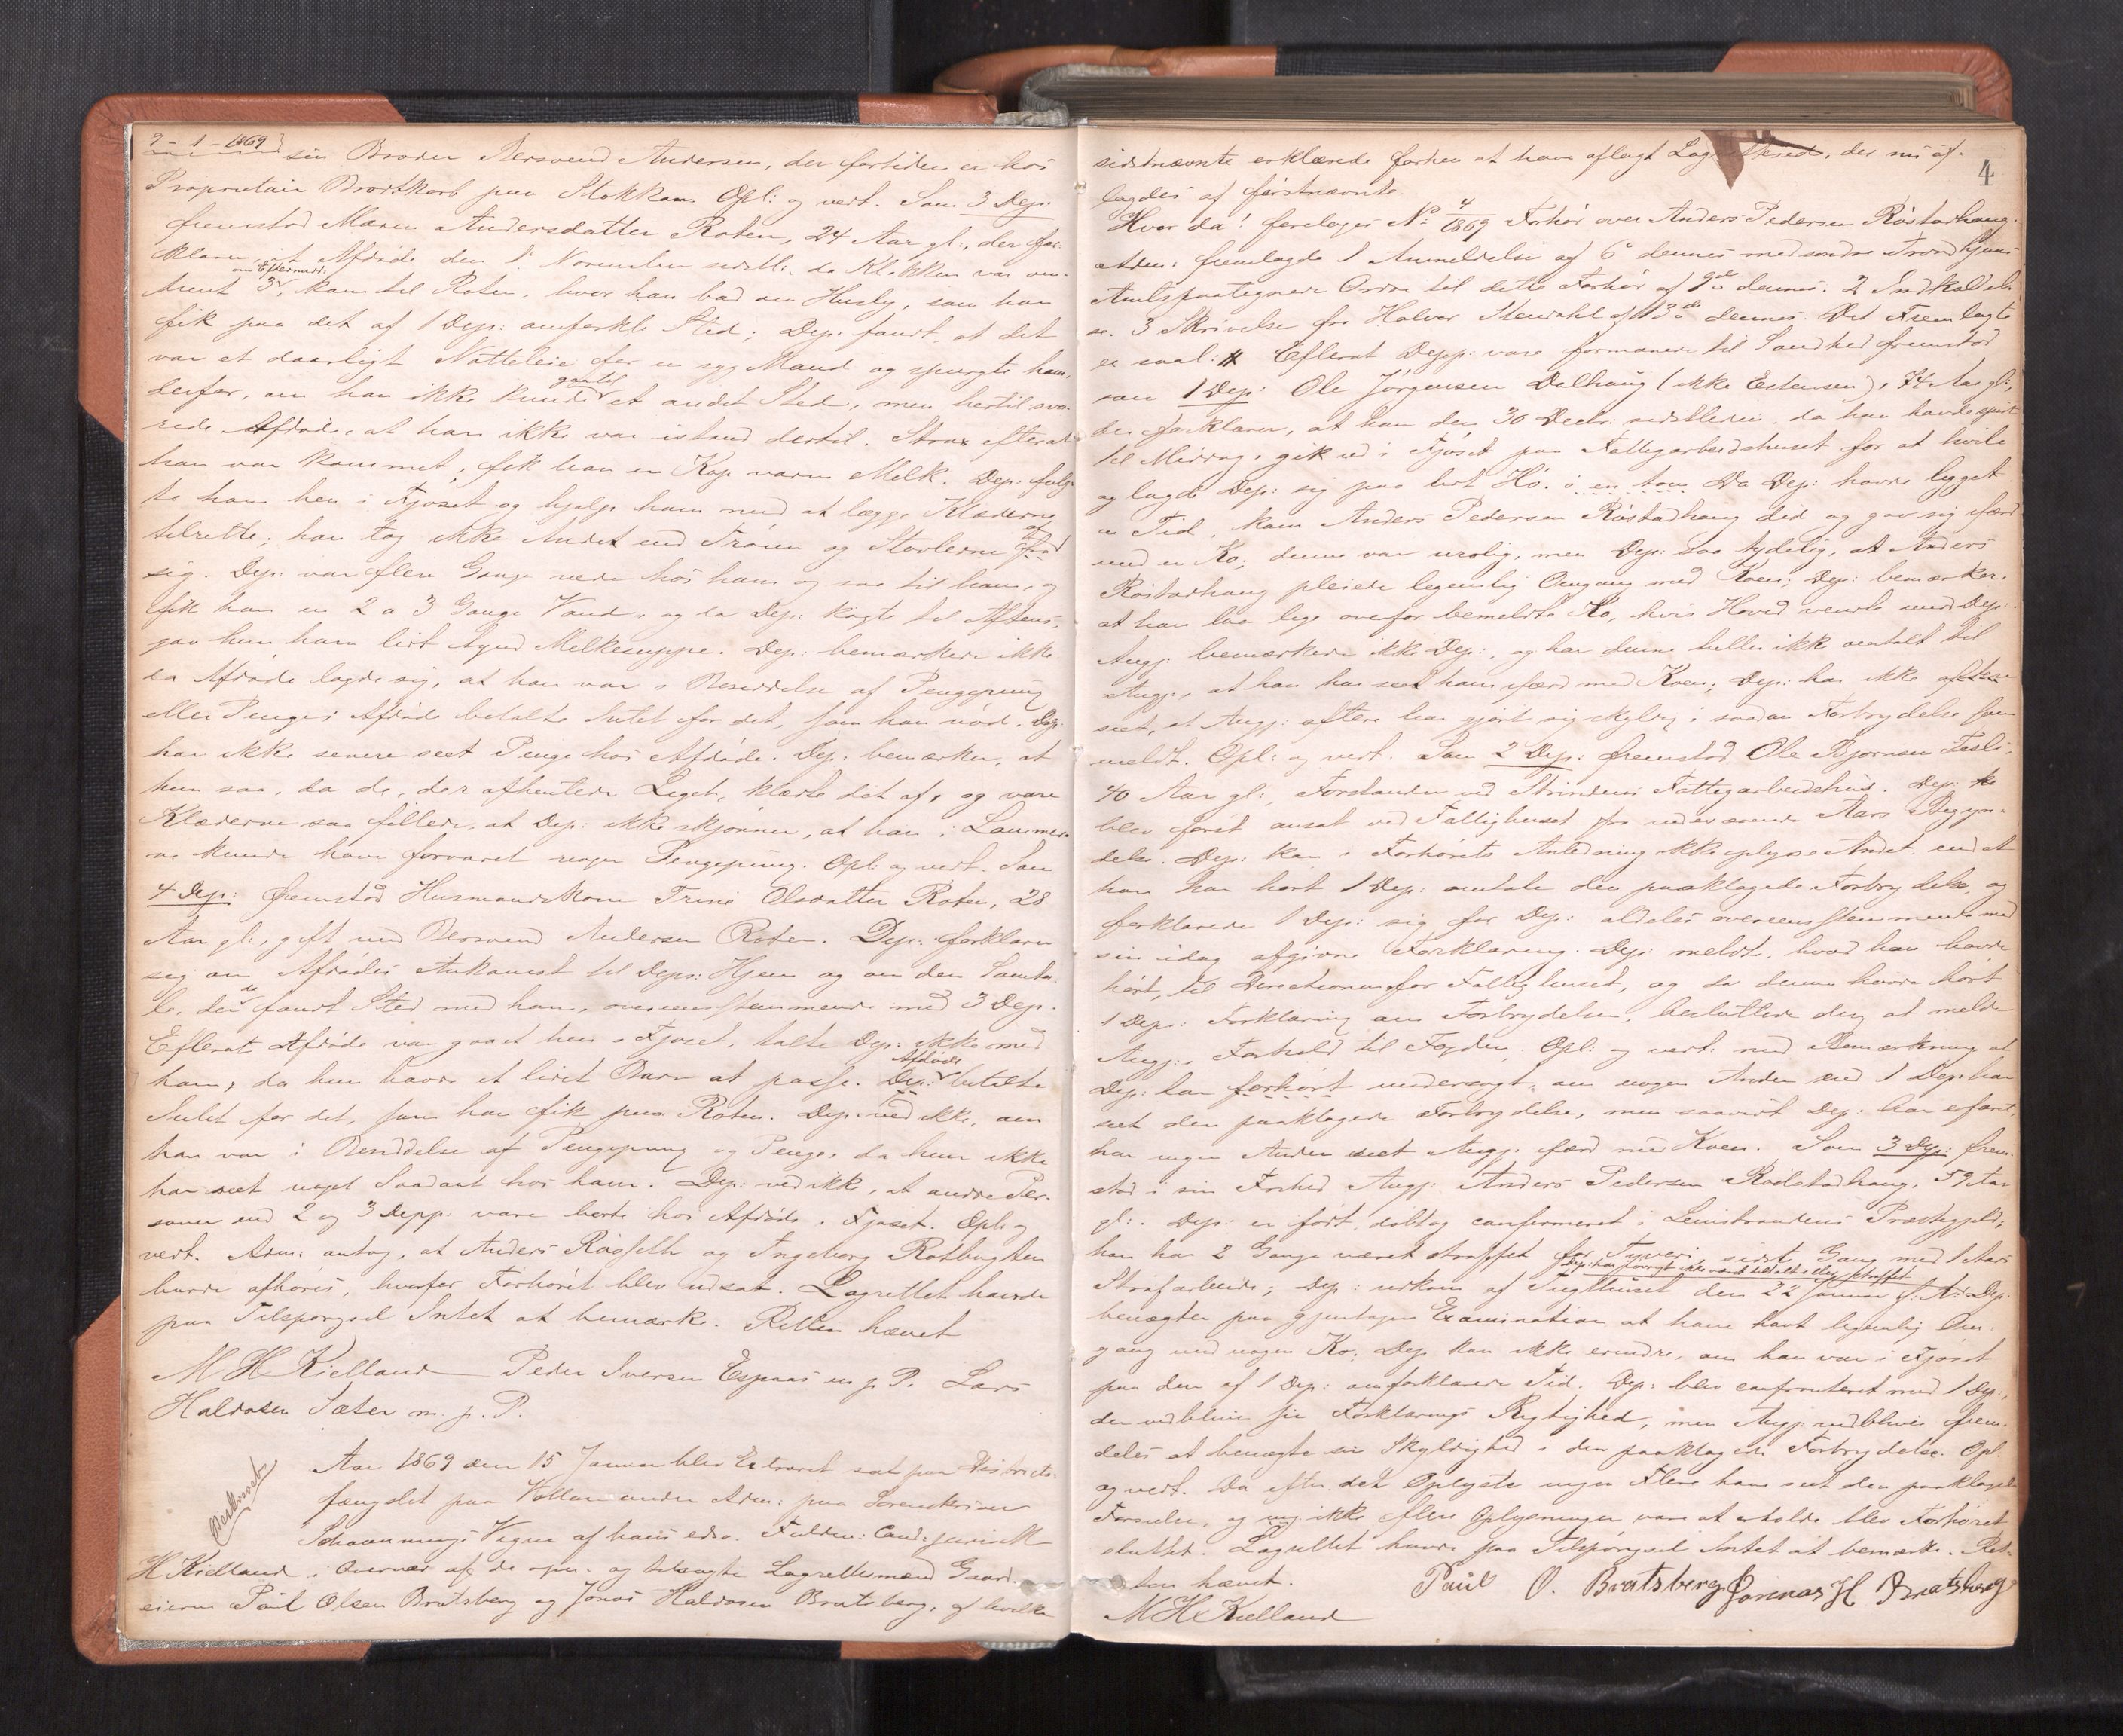 9 - 1 - 1869
sin Broder Bersvend Andersen, der fortiden er hos
Proprietair Brodtkorb paa Stokkan. Opl: og vedt. Som 3 Dep:
fremstod Maren Andersdatter Roten, 24 Aar gl:, der for-
klarer, at Afdøde den 1 November sidstl:, da Klokken var om-
trent 3 om Eftermidd:, kom til Roten, hvor han bad om Huusly, som han
fik paa det af 1 Dep: omforkl: Sted; Dep: fandt, at det
var et daarligt Natteleie for en syg Mand og spurgte ham
derfor, om han ikke kunde gaa til et andet Sted, men hertil sva-
rede Afdøde, at han ikke var istand dertil. Strax efterat
han var kommet, fik han en Kop varm Melk. Dep: fulg-
te ham hen i Fjøset og hjalp ham med at lægge Klæderne
tilrette; han tog ikke Andet end Trøien og Støvlerne af
sig. Dep: var flere Gange nede hos ham og saa til ham, og
fik han en 2 a 3 Gange Vand, og da Dep: kogte til Aftens,
gav hun ham lidt tynd Melkesuppe. Dep: bemærkede ikke
da Afdøde lagde sig, at han var i Besiddelse af Pengepung
eller Penge; Afdøde betalte Intet for det, som han nød. Dep:
har ikke senere seet Penge hos Afdøde. Dep: bemærker, at
hun saa, da de, der afhentede Liget, klædte det af, og vare
Klæderne saa fillede, at Dep: ikke skjønner, at han i Lommer-
ne kunde have forvaret nogen Pengepung. Opl: og vedt. Som
4 Dep: fremstod Husmandskone Trine Olsdatter Roten, 28
Aar gl:, gift med Bersvend Andersen Roten. Dep: forklarer
sig om Afdødes Ankomst til Deps: Hjem og om den Samta-
le, der da fandt Sted med ham, overeensstemmende med 3 Dep.
Efterat Afdøde var gaaet hen i Fjøset, talte Dep: ikke med
ham, da hun havde et lidet Barn at passe. Dep: Afdøde betalte
Intet for det, som han fik paa Roten. Dep: ved ikke, om
han var i Besiddelse af Pengepung og Penge, da hun ikke
har seet noget Saadant hos ham. Dep: ved ikke, at andre Per-
soner end 2 og 3 Depp: vare borte hos Afdøde i Fjøset. Opl: og
vedt. Adm: antog, at Anders Rosseth og Ingeborg Rotbugten
burde afhøres, hvorfor Forhøret blev udsat. Lagrettet havde
paa Tilspørgsel Intet at bemærke. Retten hævet
M H Kielland Peder Iversen Espaas m. p. P. Lars
Haldosen Sæter m. p. P.
Beskrevet
Aar 1869 den 15 Januar blev Extraret sat paa Districts-
fængslet paa Vollan under Adm: paa Sorenskriver
Schavnings Vegne af hans edsv. Fuldm: Cand: juris M
H Kielland i Overvær af de opn. og tilsagte Lagrettesmænd Gaard-
eierne Paul Olsen Bratsberg og Jonas Haldosen Bratsberg, af hvilke
4
sidstnævnte erklærede forhen at have aflagt Lagrettesed, der nu af-
lagdes af førstnævnte.
Hvor da! foretoges No 4/1869 Forhør over Anders Pedersen Røstadhaug.
Adm: fremlagde 1 Anmeldelse af 6 dennes med søndre Trondhjems
Amts paategnede Ordre til dette Forhør af 9de dennes. 2 Indkaldel-
se. 3 Skrivelse fra Halvor Stendahl af 13de dennes. Det Fremlagte
er saal: Efterat Depp: vare formanede til Sandhed fremstod
som 1 Dep: Ole Jørgensen Dalhaug (ikke Estensen), 74 Aar gl:,
der forklarer, at han den 30 Decbr: sidstleden, da han havde spist
til Middag, gik ud i Fjøset paa Fattigarbeidshuset for at hvile
og lagde Dep: sig paa lidt Hø i en tom Da Dep: havde ligget
en Tid, kom Anders Pedersen Røstadhaug did og gav sig ifærd
med en Ko; denne var urolig, men Dep: saa tydelig, at Anders
Røstadhaug pleiede legemlig Omgang med Koen; Dep: bemærker,
at han laa lige overfor bemeldte Ko, hvis Hoved vendte mod Dep:.
Angj: bemærkede ikke Dep:, og har denne heller ikke omtalt til
Angj:, at han har seet ham ifærd med Koen; Dep: har ikke
seet, at Angj: oftere har gjort sig skyldig i saadan Forbrydelse som
meldt. Opl: og vedt. Som 2 Dep: fremstod Ole Bjørnsen Fesli,
40 Aar gl:, Forstander ved Strindens Fattigarbeidshus. Dep:
blev først ansat ved Fattighuset fra nuværende Aars Begyn-
delse. Dep: kan i Forhørets Anledning ikke oplyse Andet end at
han har hørt 1 Dep: omtale den paaklagede Forbrydelse, og
forklarede 1 Dep: sig for Dep: aldeles overeensstemmende med
sin idag afgivne Forklaring. Dep: meldte, hvad han havde
hørt, til Directionen for Fattighuset, og da denne havde hørt
1 Deps: Forklaring om Forbrydelsen, besluttede den at melde
Angj:s Forhold til Fogden. Opl: og vedt: med Bemærkning at
Dep: har forhørt undersøgt, om nogen Anden end 1 Dep: har
seet den paaklagede Forbrydelse, men saavidt Dep: har erfaret,
har ingen Anden seet Angj: ifærd med Koen. Som 3 Dep: frem-
stod i sin Frihed Angj: Anders Pedersen Rødstadhaug, 59 Aar
gl:. Dep: er født, døbt og confirmeret i Leinstrandens Præstegjeld;
han har 2 Gange været straffet for Tyveri, sidste Gang med 1 Aars
Strafarbeide; Dep: har forøvrigt ikke været tiltalt eller straffet Dep: udkom af Tugthuset den 22 Januar f: A: Dep:
benægter paa gjentagen Examination at have havt legemlig Om-
gang med nogen Ko; Dep: kan ikke erindre, om han var i Fjøset
paa den af 1 Dep: omforklarede Tid. Dep: blev confronteret med 1 Dep:,
der vedblev sin Forklarings Rigtighed, men Angj: vedblev frem-
deles at benægte sin Skyldighed i den paaklagede Forbrydelse. Opl.
og vedt. Da efter det Oplyste ingen Flere have seet den paaklagede
Forseelse, og ikke flere Oplysninger vare at erholde, blev Forhøret
sluttet. Lagrettet havde paa Tilspørgsel Intet at bemærke. Ret-
ten hævet.
M H Kielland Paul O. Bratsberg Jonnas H Bratsberg